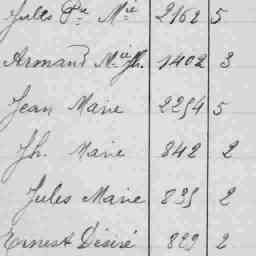 Jules Pre Mie 2162 5
Armand Mie Jh. 1402 3
Jean Marie 2254 5
Jh. Marie 842 2
Jules Marie 835 2
Ernest Désiré 829 2